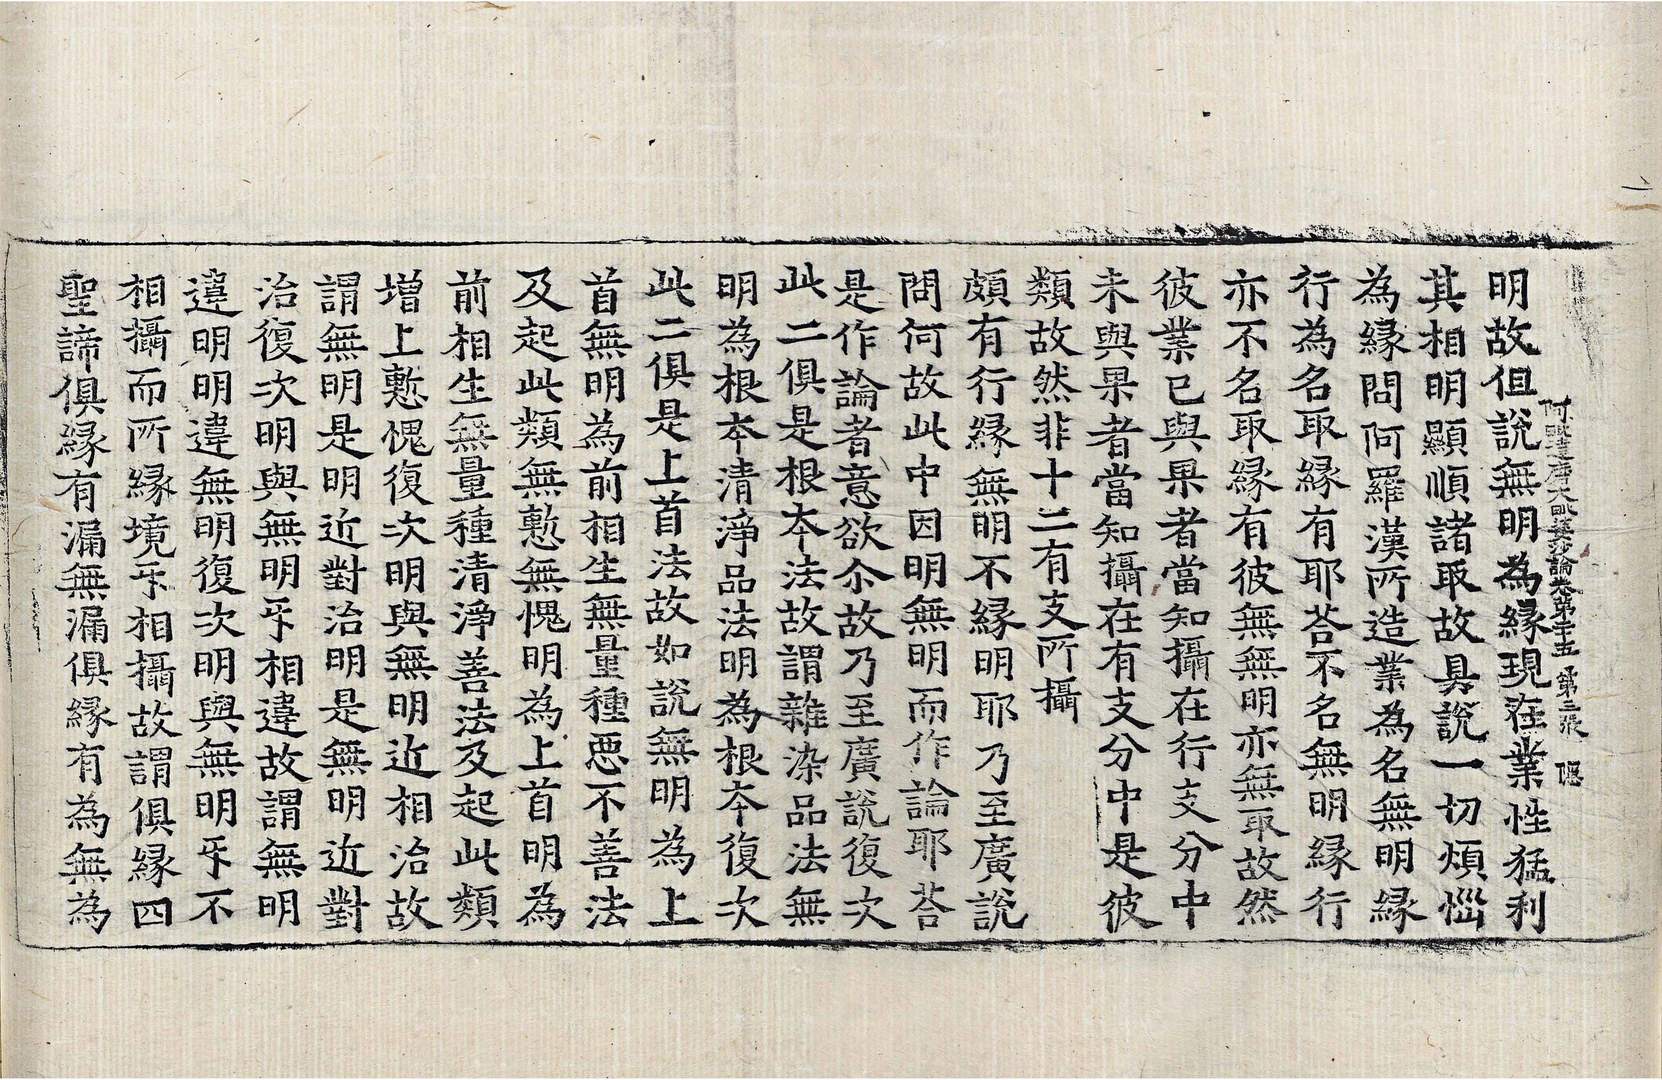 阿毗達磨大毗婆沙論卷第二十五 第三張
明故但說無明為緣現在業性猛利
其相明顯順諸取故具說一切煩惱
為緣問阿羅漢所造業為名無明緣
行為名取緣有耶荅不名無明緣行
亦不名取緣有彼無無明亦無取故然
彼業已與果者當知攝在行支分中
未與果者當知攝在有支分中是彼
類故然非十二有支所攝
頗有行緣無明不緣明耶乃至廣說
問何故此中因明無明而作論耶荅
是作論者意欲尒故乃至廣說復次
此二俱是根夲法故謂雜染品法無
明為根夲清淨品法明為根夲復次
此二俱是上首法故如說無明為上
首無明為前相生無量種惡不善法
及起此類無慙無愧明為上首明為
前相生無量種清淨善法及起此類
增上慙愧復次明與無明近相治故
謂無明是明近對治明是無明近對
治復次明與無明㸦相違故謂無明
違明明違無明復次明與無明㸦不
相攝而所緣境㸦相攝故謂俱緣四
聖諦俱緣有漏無漏俱緣有為無為